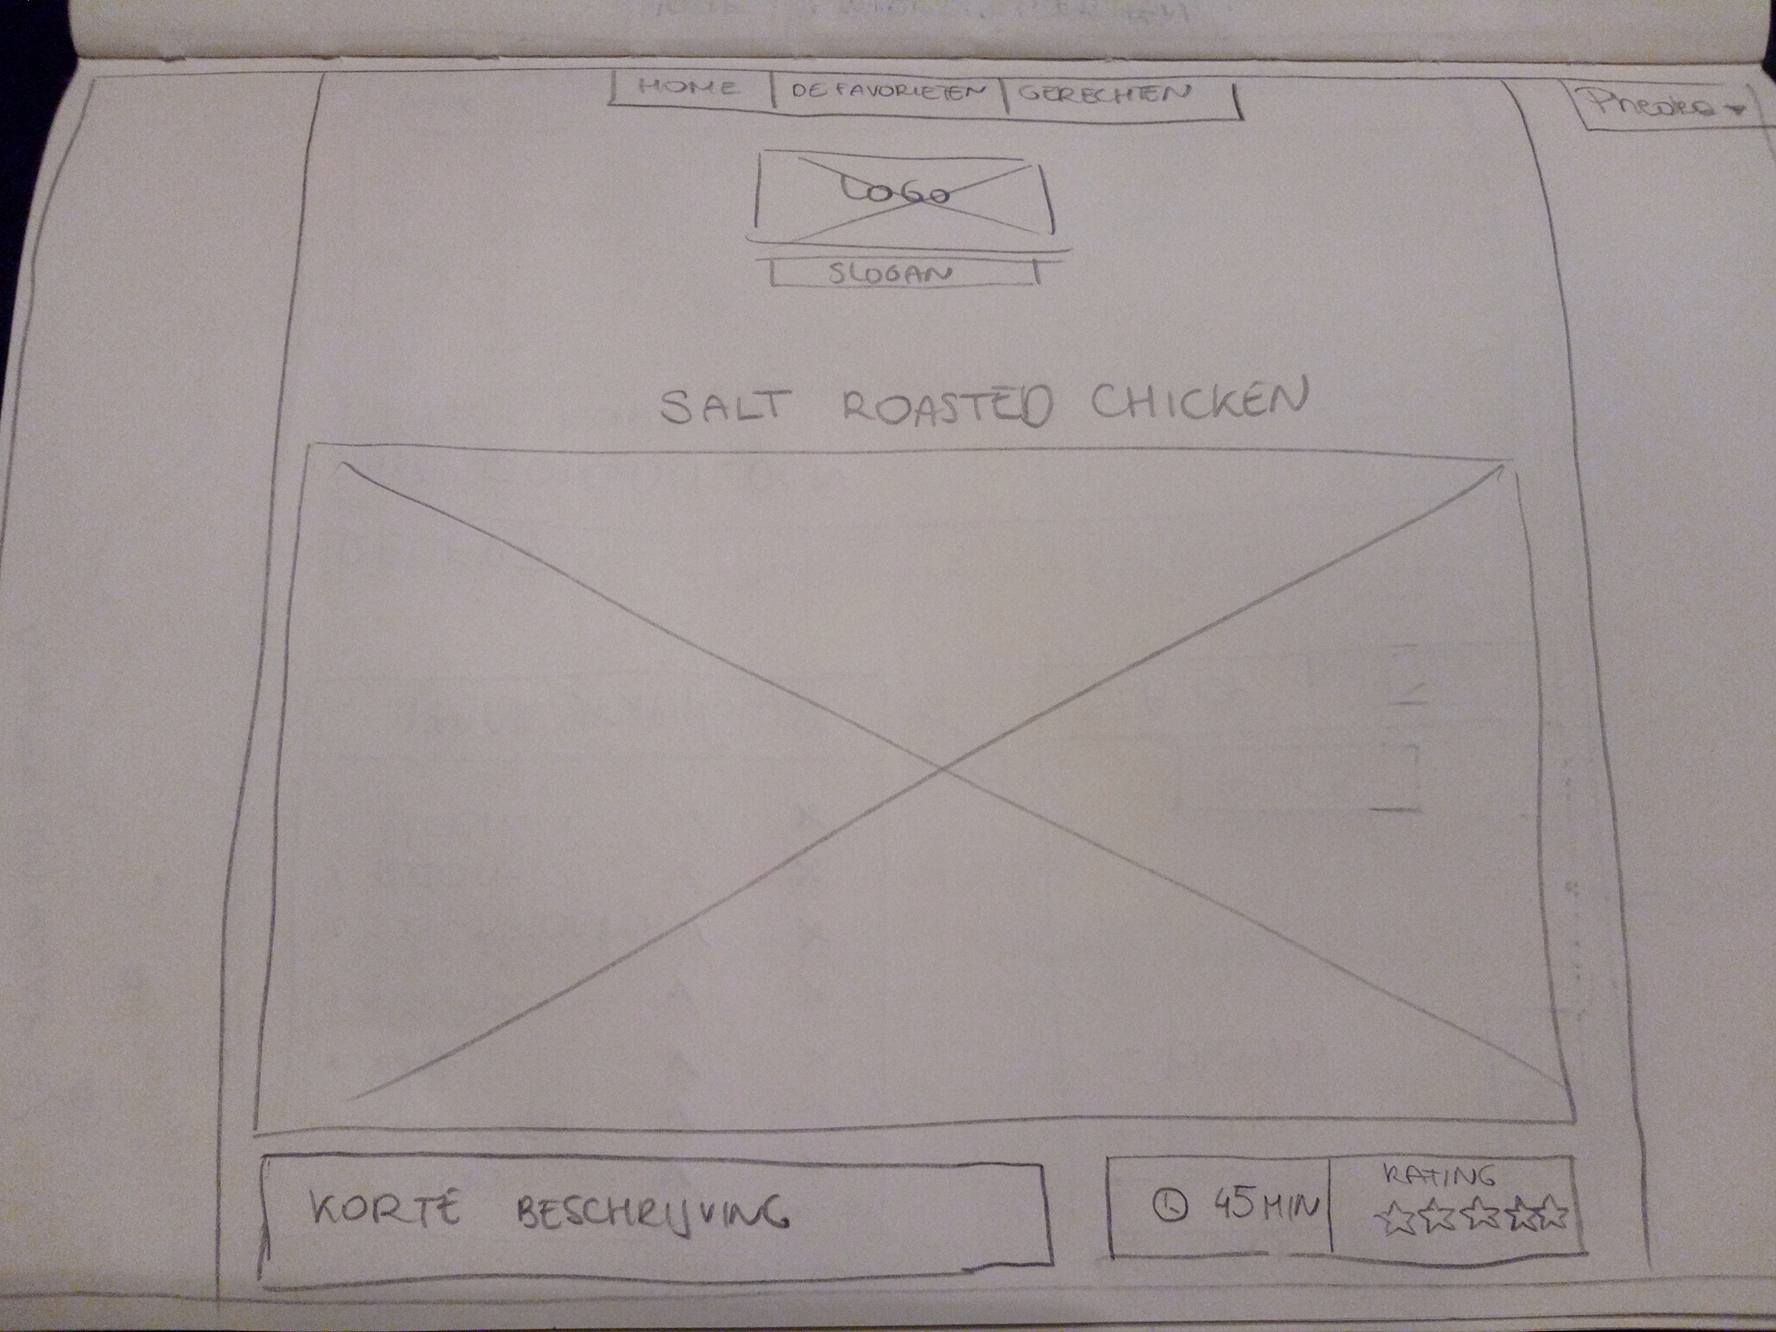 HOME DE FAVORIETEN GERECHTEN
LOGO
SLOGAN
SALT ROASTED CHICKEN
KORTE BESCHRIJVING
45 MIN
RATING